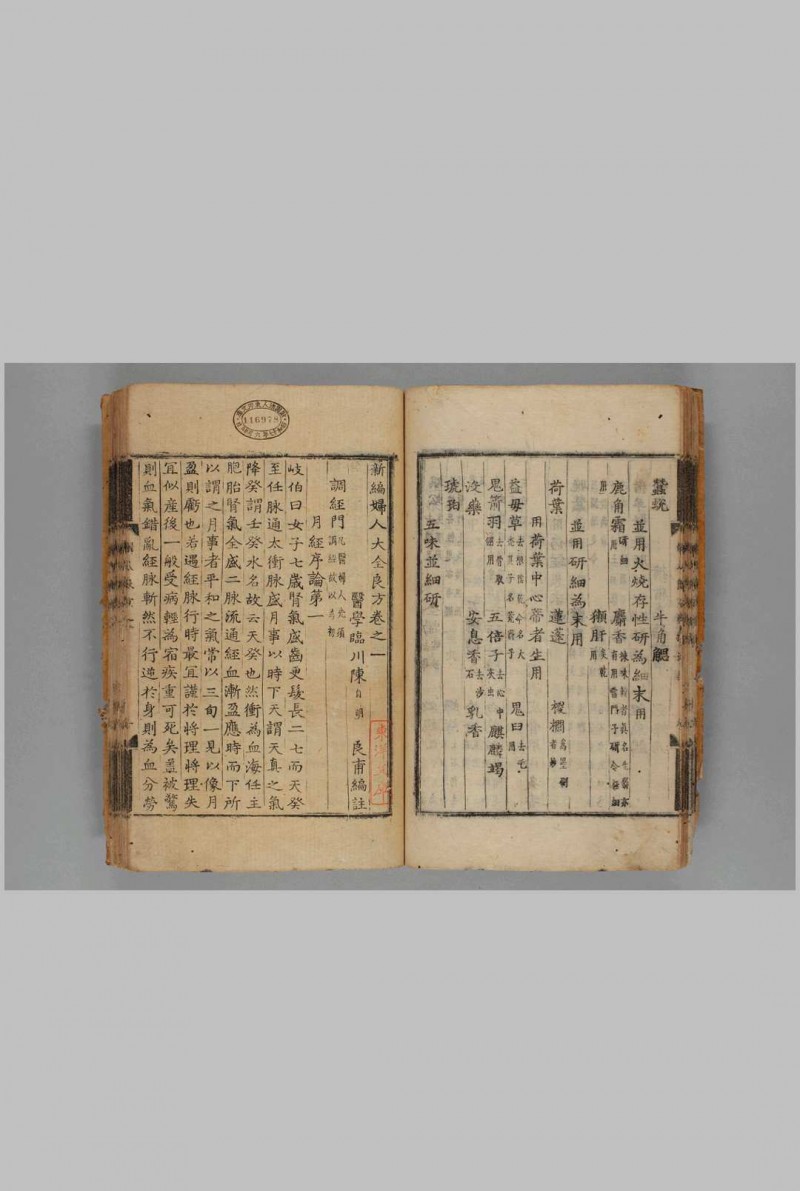 蠶蛻 牛角䚡
並用火燒存性研爲細末用
鹿角霜 麝香
獺肝
並用研細爲末用
荷葉 蓮蓬 椶櫚
用荷葉中心蒂者生用
益母草 鬼臼
鬼箭羽 五倍子 麒麟竭
沒藥 安息香 乳香
琥珀
五味並細研
新編婦人大全良方卷之一
醫學臨川陳自明良甫編註
調經門 凡醫婦人先須調經故以爲初
月經序論第一
岐伯曰女子七歲腎氣盛齒更髮長二七而天癸
至任脉通太衝脉盛月事以時下天謂天真之氣
降癸謂壬癸水名故云天癸也然衝爲血海任主
胞胎腎氣全盛二脉流通經血漸盈應時而下所
以謂之月事者平和之氣常以三旬一見以像月
盈則虧也若遇經脉行時最宜謹於將理將理失
宜似產後一般受病輕爲宿疾重可死矣盖被驚
則血氣錯亂經脉斬然不行逆於身則爲血分勞
116978